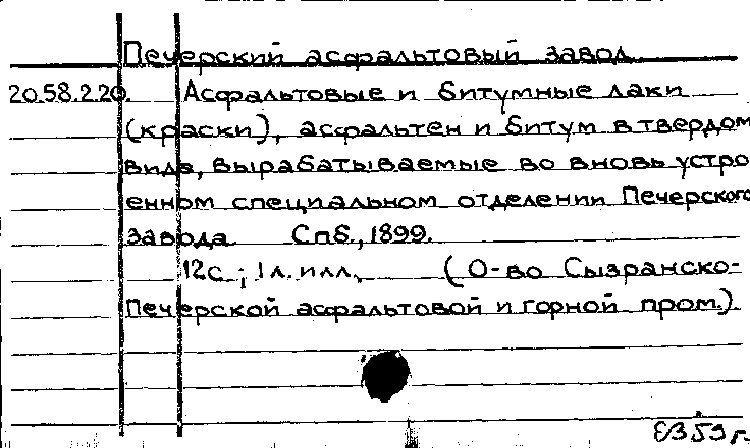 Печерский асфальтовый завод
20.58.2.20. Асфальтовые и битумные лаки
(краски), асфальтен и битум в твердом
виде, вырабатываемые во вновь устро
енном специальном отделении Печерского
завода Спб., 1899.
12с.; 1 л. илл. (О-во Сызранско-
Печерской асфальтовой и горной пром.)